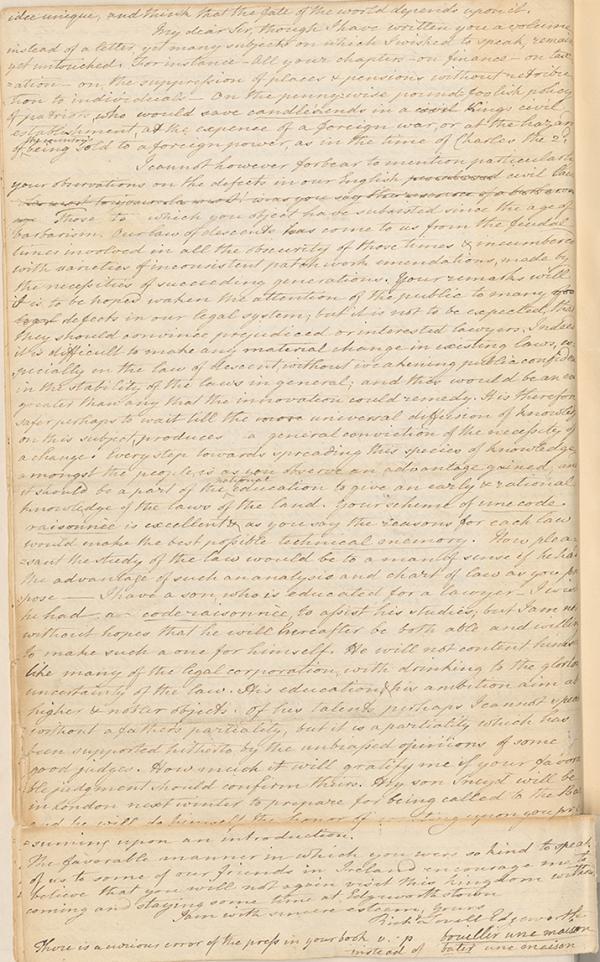 idée unique, and think that the fate of the world depends upon it.
My dear Sir, though I have written you a volume
instead of a letter, yet many subjects on which I wished to speak, remain
yet untouched. For instance - All your chapters - on finance - on tax
ation - on the suppression of places & pensions without retribu
tion to individuals - On the penny-wise pound foolish policy
of patriots, who would save candle-ends in a civil Kings civil
establishment, at the expence of a foreign war, or at the hazard
of being sold to a foreign power, as in the time of Charles the 2d.
I cannot however forbear to mention particularly
your observations on the defects in our English civil law
Those to which you object have subsisted since the age of
barbarism. Our law of descents has come to us from the feudal
times involved in all the obscurity of those times & incumbered
with varieties of inconsistent patch work emendations, made by
the necessities of succeeding generations. Your remarks will
it is to be hoped waken the attention of the public to many
defects in our legal system, but it is not to be expected, that
they should convince prejudiced or interested lawyers. Indeed
it is difficult to make any material change in existing laws, es
pecially in the law of descent, without weakening public confidence
in the stability of the laws in general; and this would be an evil
greater than any that the innovation could remedy. It is therefore
safer perhaps to wait till the more universal diffusion of knowledge
on this subject, produces a general conviction of the necessity of
a change. Every step towards spreading this species of knowledge
amongst the people, is as you observe an advantage gained, and
it should be a part of the national education to give an early & rational
knowledge of the laws of the land. Your scheme of une code
raisonnée is excellent & as you say the reasons for each law
would make the best possible technical memory. How plea
sant the study of the law would be to a man of sense if he had
the advantage of such an analysis and chart of law as you pro
pose - I have a son, who is educated for a lawyer - I wish
he had a code raisonnée, to assist his studies, but I am not
without hopes that he will hereafter be both able and willing
to make such a one for himself. He will not content himself
like many of the legal corporation, with drinking to the glorious
uncertainty of the law. His education & his ambition aim at
higher & nobler objects. Of his talents perhaps I cannot speak
without a fathers partiality, but it is a partiality which has
been supported hitherto by the unbiassed opinions of some
good judges. How much it will gratify me if your favora
ble judgment should confirm theirs. My son Sneyd will be
in London next winter to prepare for being called to the Bar
and he will do himself the honor of upon you pre
suming upon an introduction.
The favorable manner in which you were so kind to speak
of us to some of our friends in Ireland encourage me to
believe that you will not again visit this kingdom without
coming and staying some time at Edgeworthstown
I am with sincere esteem, Yours
Richd Lovell Edgeworth
There is a curious error of the press in your book v. p bouiller une maison
instead of batir une maison